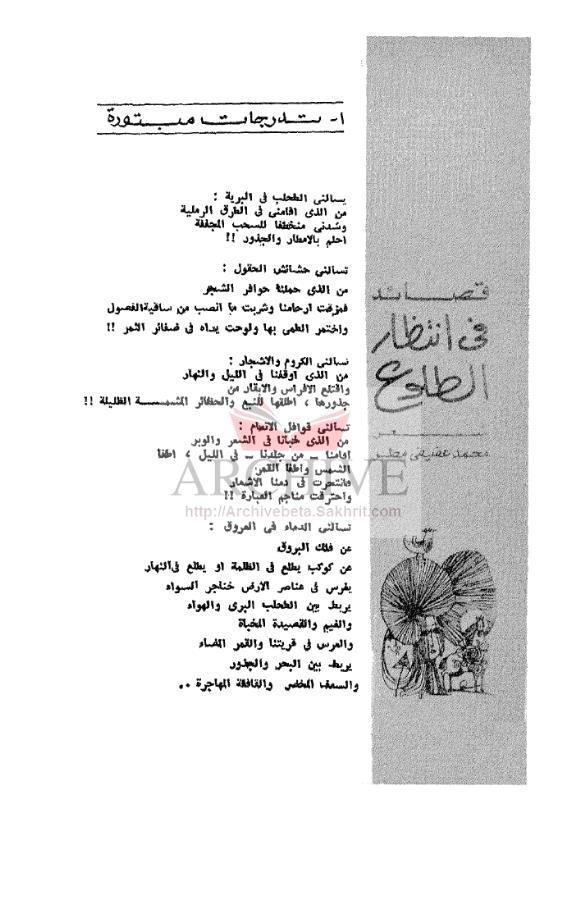 قصائد
في انتظار
الطلوع
شعر
محمد عفيفي مطر
١- تدرجات مبتورة
يسالنى الطحلب فى البرية :
من الذى اقامنى فى الطرق الرملية
وشدنى منخطفا للسحب المجففة
احلم بالامطار والجذور !!
تسالنى حشائش الحقول :
من الذى حملنه حوافر الشجر
فمزقت ارحامنا وشربت ما انصب من ساقية الفصول
واختمر الطمى بها ولوحت يداه فى ضفائر الثمر !!
تسالنى الكروم والاشجار :
من الذى اوقفنا فى الليل والنهار
واقتلع الافراس والابقار من
جذورها ، اطلقها للنبع والحظائر المشمسة الظليلة !!
تسالنى قوافل الانعام :
من الذى خبانا فى الشعر والوبر
اقامنا – من جلدنا – فى الليل ، اطفا
الشمس واطفا القمر
فانتحرت فى دمنا الاشعار
واحترقت مناجم العبارة !!
تسالنى الدماء فى العروق :
عن فلك البروق
عن كوكب يطلع فى الظلمة او يطلع فى النهار
يغرس فى عناصر الارض خناجر السواء
يربط بين الطحلب البرى والهواء
والغيم والقصيدة المخباة
والعرس فى قريتنا والقمر المضاء
يربط بين البحر والجذور
والسعف المخضر والقافلة المهاجرة ..
ARCHIVE
http://Archivebeta.Sakhrit.com